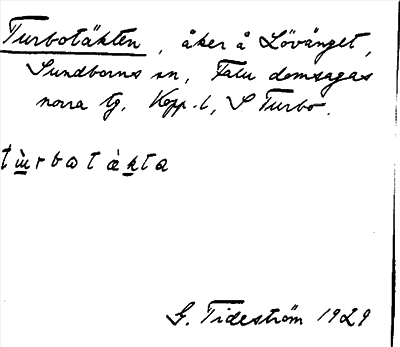 Turbotäkten, åker å Lövänget,
Sundborns sn, Falu domsagas
norra tg. Kopp. l, S Turbo.
tɯ̀rbotàkta
G. Tideström 1929